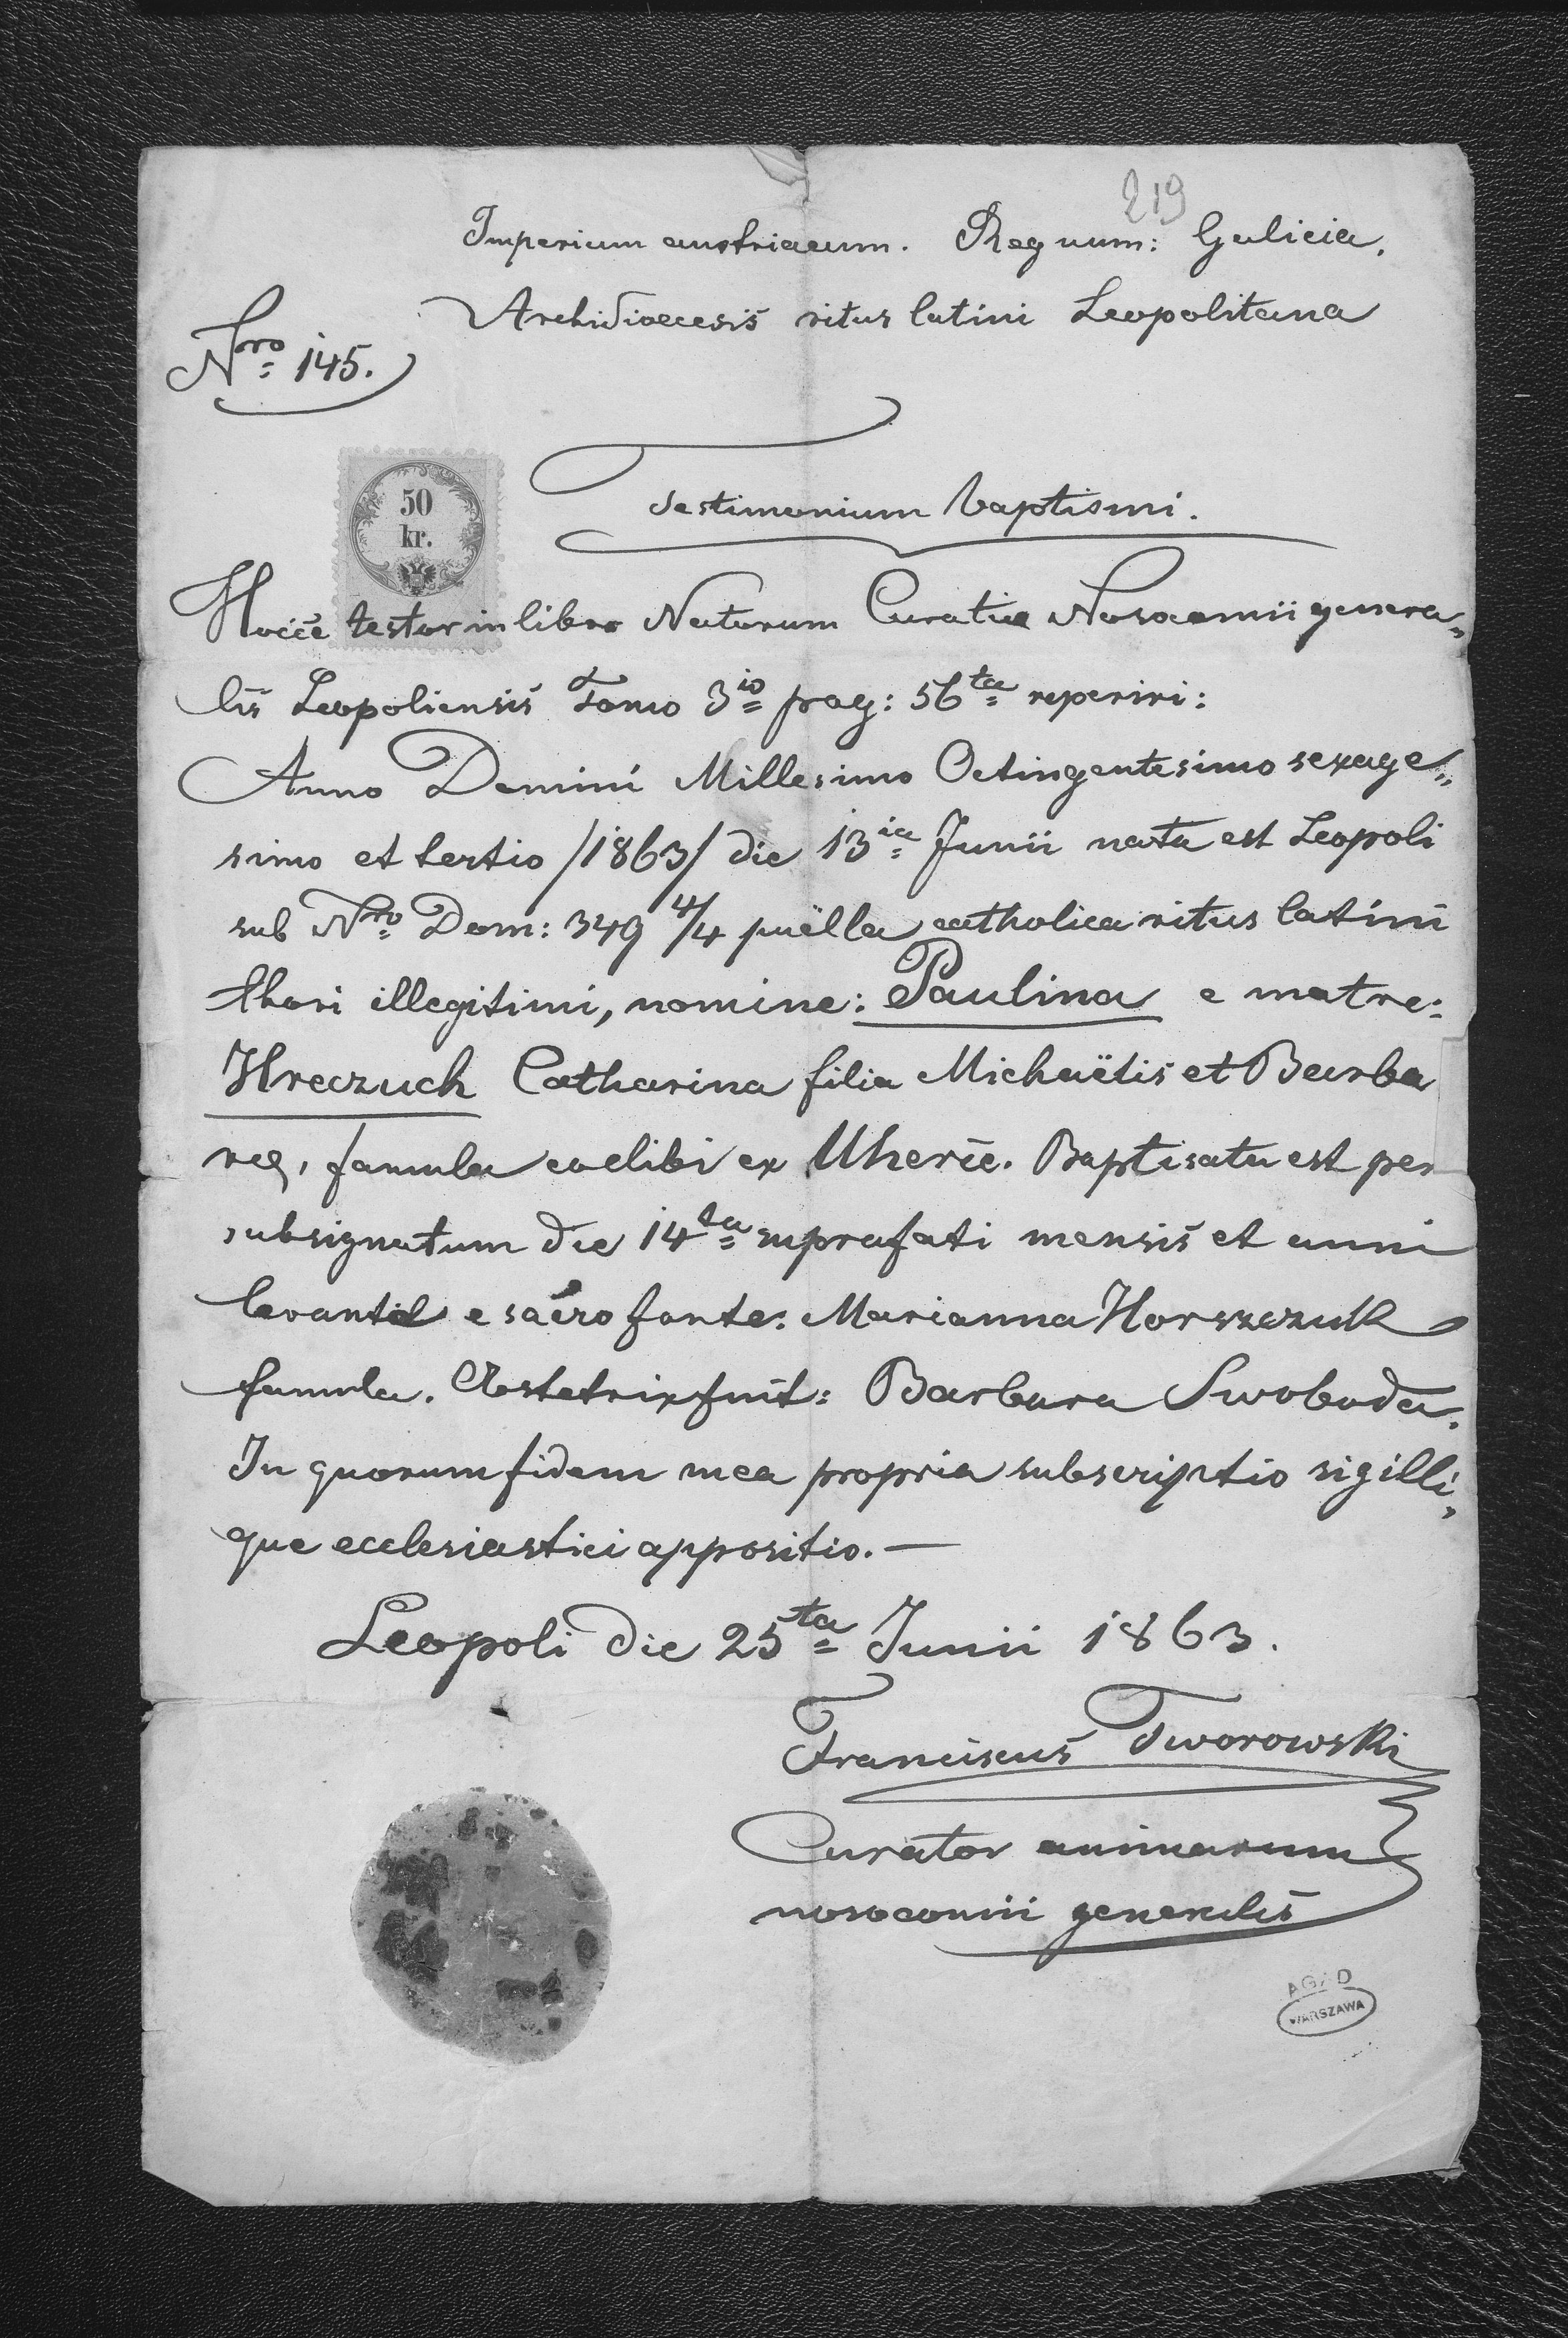 219
Imperium austriacum. Regnum: Galicia.
Archidioecesis ritus latini Leopolitana
Nro 145.
50
kr.
Testimonium baptismi.
Hocce testor in libro Natorum Curatiae Nosocomii genera„
lis Leopoliensis Tomo 3io pag: 56ta reperiri:
Anno Domini Millesimo Octingentesimo sexage„
simo et tertio /1863/ die 13ia Junii nata est Leopoli
sub Nro Dom: 349 4/4 puëlla catholica ritus latini
thori illegitimi, nomine: Paulina e matre:
Hreczuch Catharina filia Michaëlis et Barba
rae, famula coelibi ex Uherce. Baptisata est per
subsignatum die 14ta suprafati mensis et anni
levante e sacro fonte: Marianna Horszczuk
famula. Obstetrix fuit: Barbara Swoboda.
In quorum fidem mea propria subscriptio sigilli„
que ecclesiastici appositio.—
Leopoli die 25ta Junii 1863.
Franciscus Tworowski
Curator animarum
nosocomii generalis
AGAD
WARSZAWA